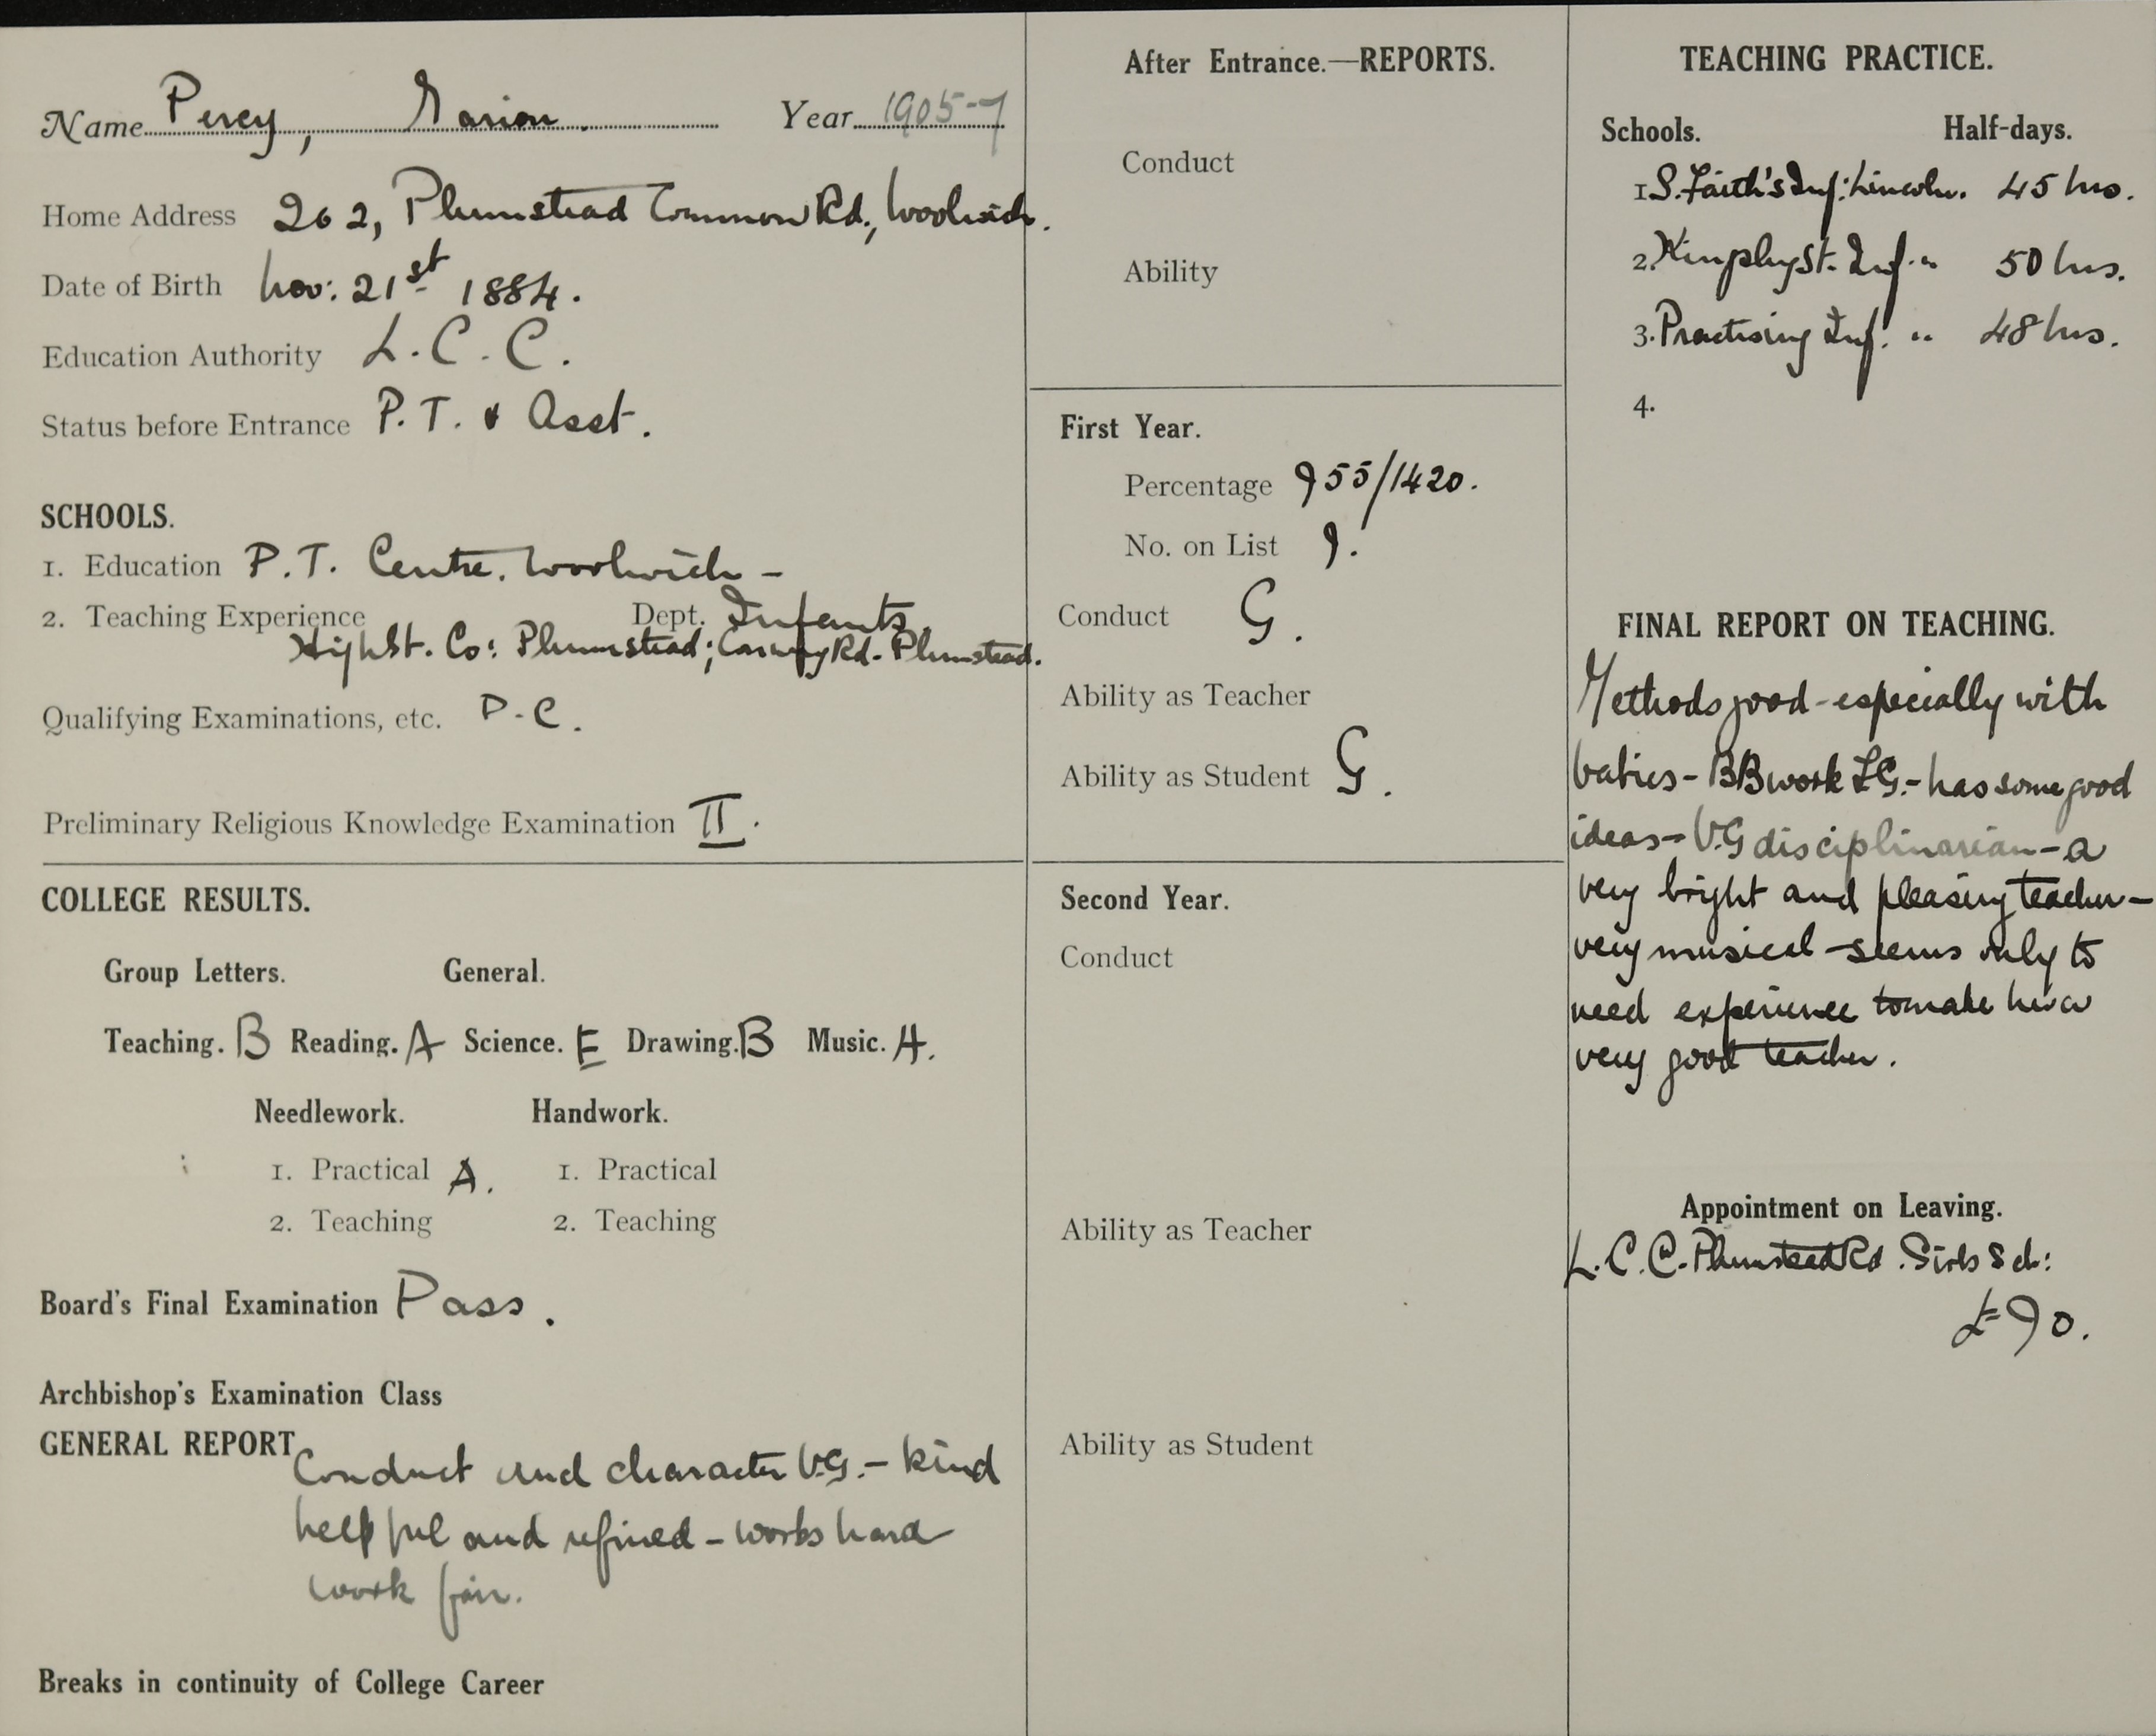 Name Percy, Marion. Year 1905-7
Home Address 262, Plumstead Common Rd., Woolwich.
Date of Birth Nov: 21st 1884.
Education Authority L.C.C.
Status before Entrance P.T. & Asst.
SCHOOLS.
1. Education P.T. Centre. Woolwich -
2. Teaching Experience Dept. Infants.
High St. Co: Plumstead; Conway Rd. Plumstead.
Qualifying Examinations, etc. P.C.
Preliminary Religious Knowledge Examination II.
COLLEGE RESULTS.
Group Letters. General.
Teaching. B Reading. A Science. E Drawing. B Music. A.
Needlework. Handwork.
1. Practical A. 1. Practical
2. Teaching 2. Teaching
Board's Final Examination Pass.
Archbishop's Examination Class
GENERAL REPORT
Conduct and character V.G. - kind
helpful and refined - works hard
work fair.
Breaks in continuity of College Career
After Entrance.—REPORTS.
Conduct
Ability
First Year.
Percentage 955/1420.
No. on List 9.
Conduct G.
Ability as Teacher
Ability as Student G.
Second Year.
Conduct
Ability as Teacher
Ability as Student
TEACHING PRACTICE.
Schools. Half-days.
1. S. Faith's Inf: Lincoln. 45 hrs.
2. St. Inf. " 50 hrs.
3. Practising Inf. " 48 hrs.
4.
FINAL REPORT ON TEACHING.
Methods good - especially with
babies - BB work F.G. - has some good
ideas - V.G disciplinarian - a
very bright and pleasing teacher -
very musical - seems only to
need experience to make her a
very good teacher.
Appointment on Leaving.
L.C.C. Plumstead Rd. Girls Sch:
£90.